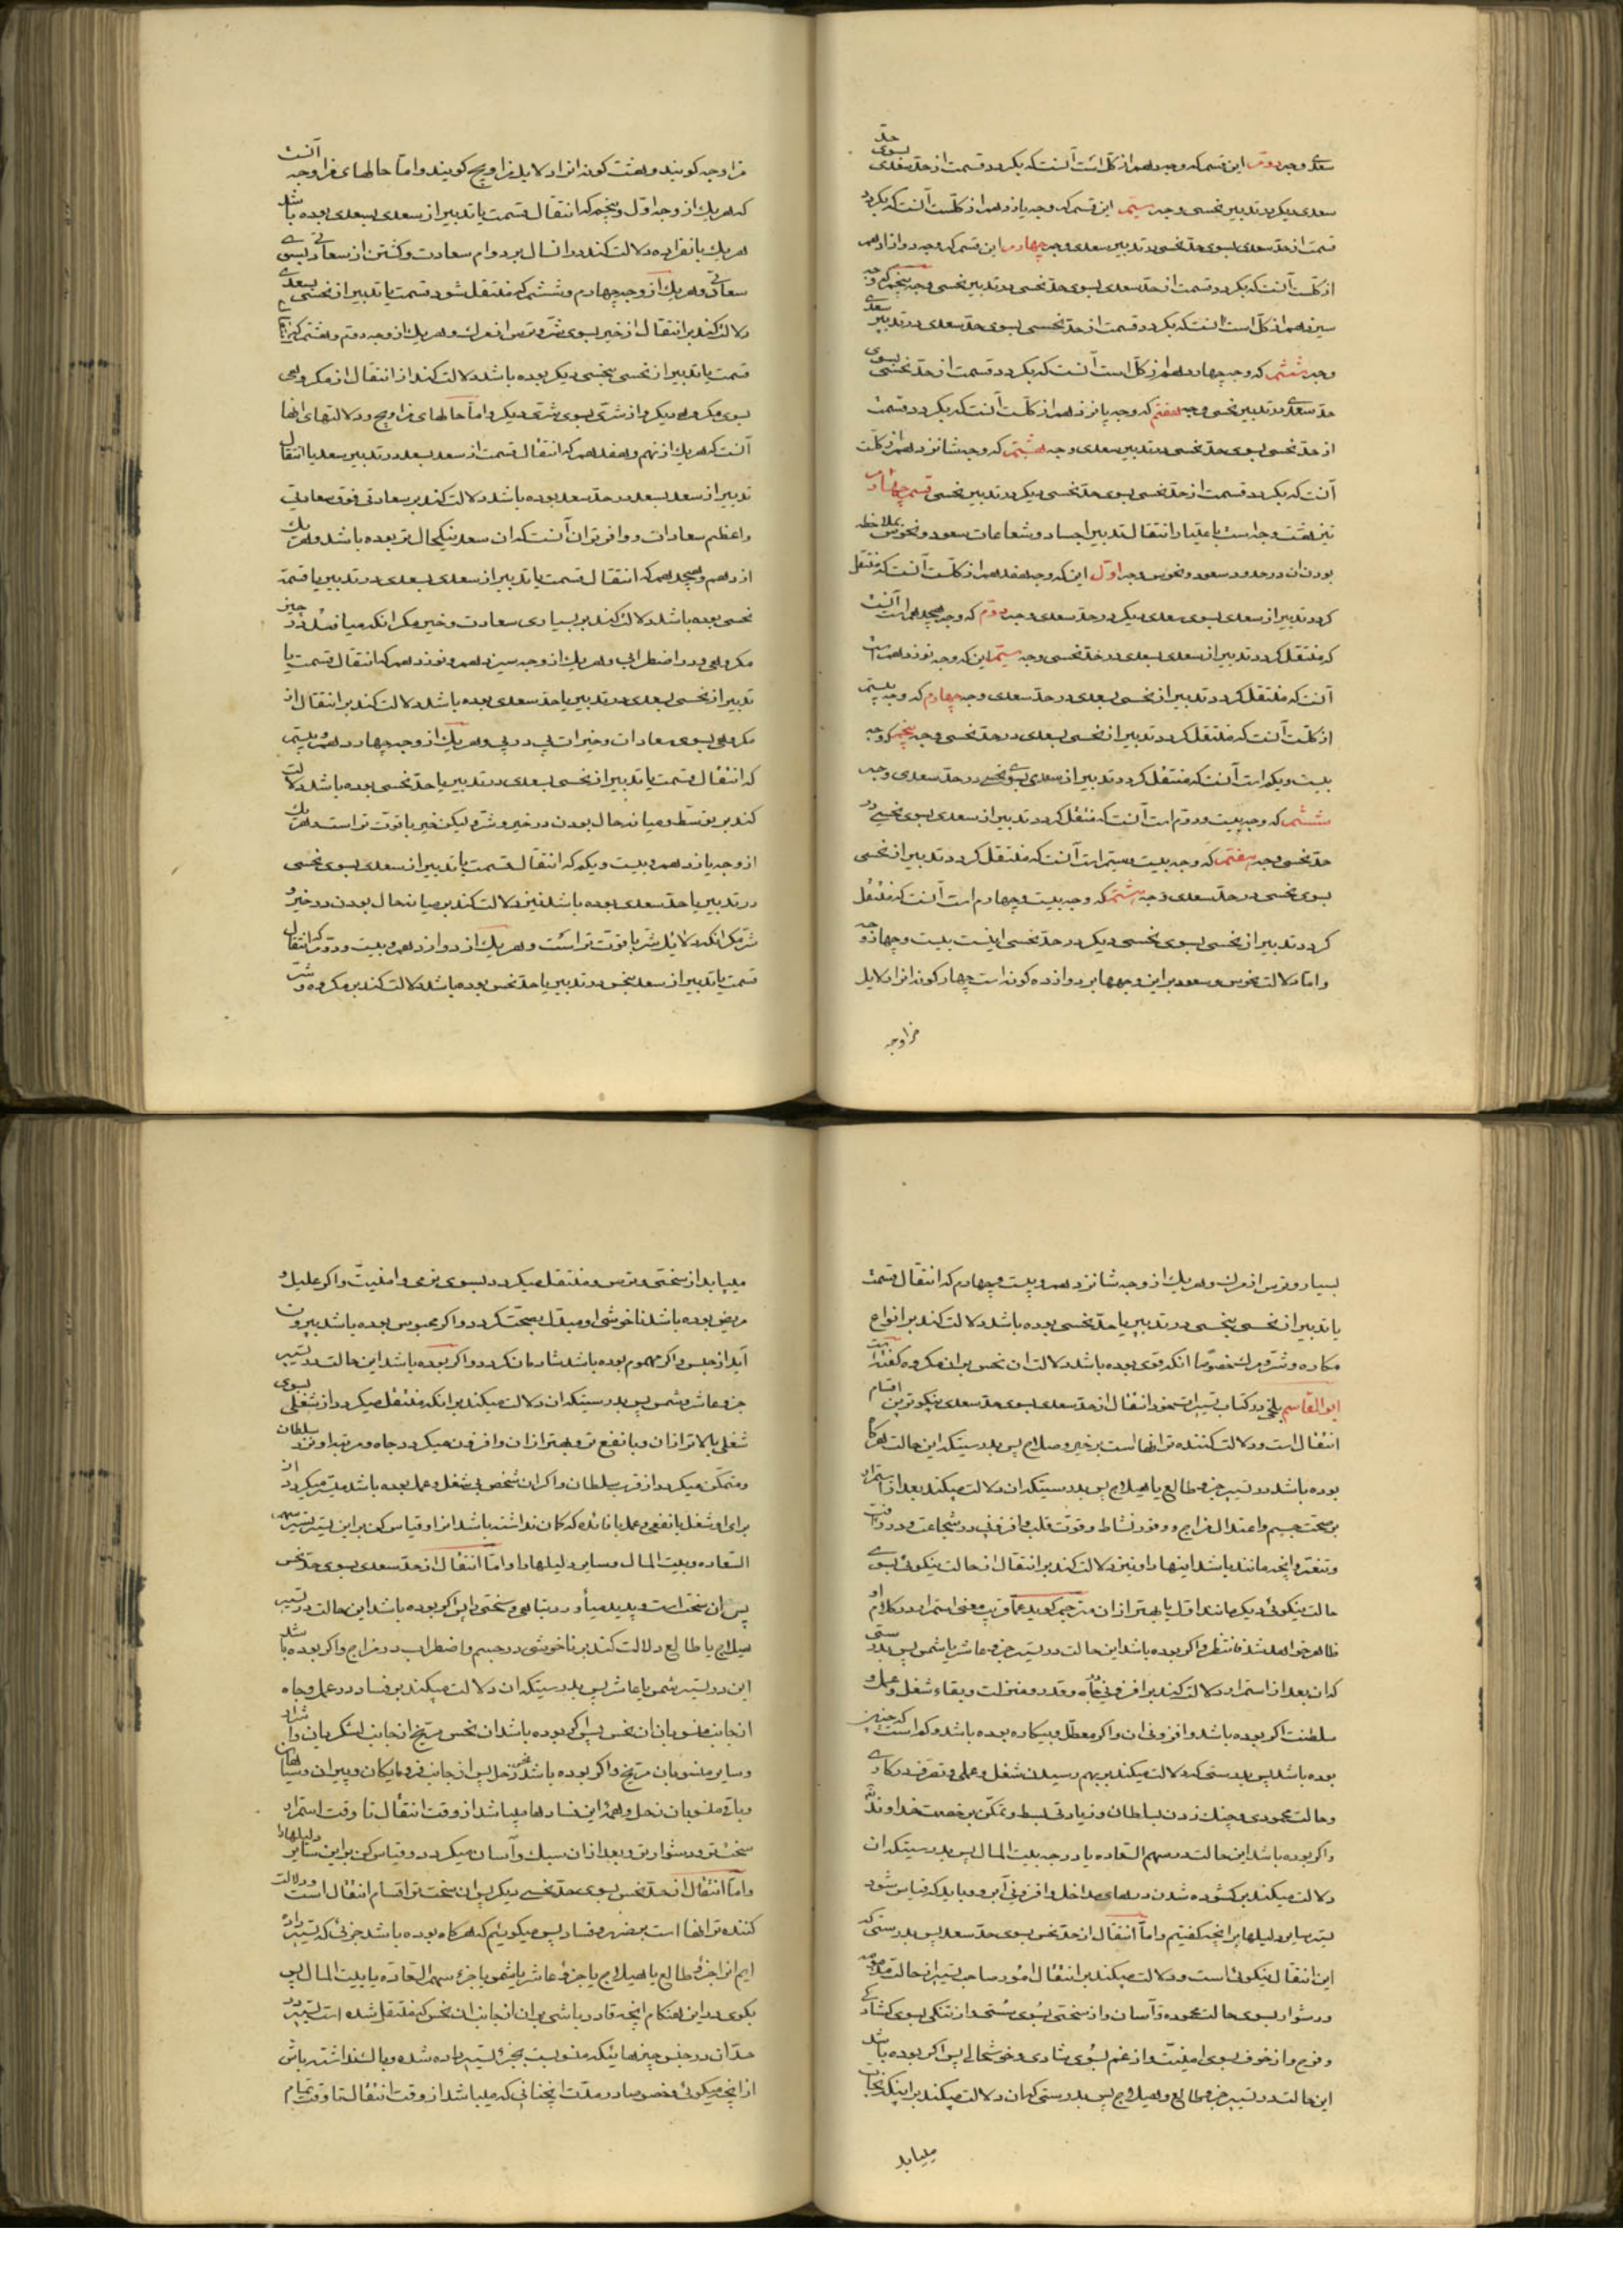 سعدی وجه دوم این قسم که وجه دهم از کل است آنست که بگردد قسمت از حد سعدی بسوی حد
سعدی دیگر در تدبیر نحسی وجه سیم این قسم که وجه یازدهم از کلست آنست که بگردد
قسمت از حد سعدی بسوی حد نحسی در تدبیر سعدی وجه چهارم این قسم که وجه دوازدهم
از کلست آنست که بگردد قسمت از حد سعدی بسوی حد نحسی در تدبیر نحسی وجه پنجم که وجه
سیزدهم از کل است آنست که بگردد قسمت از حد نحسی بسوی حد سعدی در تدبیر سعدی
وجه ششم که وجه چهاردهم از کل است آنست که بگردد قسمت از حد نحسی بسوی
حد سعدی در تدبیر نحسی وجه هفتم که وجه پانزدهم از کلست آنست که بگردد قسمت
از حد نحسی بسوی حد نحسی در تدبیر سعدی وجه هشتم که وجه شانزدهم از کلست
آنست که بگردد قسمت از حد نحسی بسوی حد نحسی دیگر در تدبیر نحسی قسم چهارم
نیز هشت وجه است باعتبار انتقال تدبیر اجساد و شعاعات سعود و نحوس بملاحظه
بودن ان در حدود سعود و نحوس وجه اول این که وجه هفدهم از کلست آنست که منتقل
کردد تدبیر از سعدی بسوی سعدی دیگر در حد سعدی وجه دوم که وجه هیجدهم است آنست
که منتقل کردد تدبیر از سعدی بسعدی در حد نحسی وجه سیم این که وجه نوزدهم است
آنست که منتقل کردد تدبیر از نحسی بسعدی در حد سعدی وجه چهارم که وجه بیستم
از کلست آنست که منتقل کردد تدبیر از نحسی بسعدی در حد نحسی وجه پنجم که وجه
بیست و یکم است آنست که منتقل کردد تدبیر از سعدی بسوی نحسی در حد سعدی وجه
ششم که وجه بیست و دوم است آنست که منتقل کردد تدبیر از سعدی بسوی نحسی در
حد نحسی وجه هفتم که وجه بیست و سیم است آنست که منتقل کردد تدبیر از نحسی
بسوی نحسی در حد سعدی وجه هشتم که وجه بیست و چهارم است آنست که منتقل
کردد تدبیر از نحسی بسوی نحسی دیگر در حد نحسی اینست بیست و چهار وجه
و اما دلالت نحوس و سعود بر این وجهها بر دوازده کونه است چهار کونه انرا دلایل
مزاوجه
مزاوجه کویند و هشت کونه انرا دلایل مزاویج کویند و اما حالهای مزاوجه آنست
که هر یک از وجه اول و پنجم که انتقال قسمت یا تدبیر از سعدی بسعدی بوده باشد
هر یک بانفراده دلالت کند در انسال بر دوام سعادت و کشتن از سعادتی بسوی
سعادتی و هر یک از وجه چهارم و ششم که منتقل شود قسمت یا تدبیر از نحسی بسعدی
دلالت کند بر انتقال از خیر بسوی شر و ترس از مرک و هر یک از وجه دوم و هشتم که
قسمت یا تدبیر از نحسی بنحسی دیگر بوده باشد دلالت کند از انتقال از مکروهی
بسوی مکروه دیگر و از شری بسوی شری دیگر و اما حالهای مزاویج و دلالتهای انها
آنست که هر یک از نهم و هفدهم که انتقال قسمت از سعد بسعد در تدبیر سعد یا انتقال
تدبیر از سعد بسعد در حد سعد بوده باشد دلالت کند بر سعادتی فوق سعادتی
و اعظم سعادات و وافرتر ان آنست که ان سعد نیکحال تر بوده باشد و هر یک
از دهم و هیجدهم که انتقال قسمت یا تدبیر از سعدی بسعدی در تدبیر یا قسمة
نحسی بوده باشد دلالت کند بر بسیاری سعادت و خیر مکر انکه میافتد در
مکروهی و در اضطرابی و هر یک از وجه سیزدهم و نوزدهم که انتقال قسمت یا
تدبیر از نحسی بسعدی در تدبیر یا حد سعدی بوده باشد دلالت کند بر انتقال از
مکروهی بسوی سعادات و خیرات پی در پی و هر یک از وجه چهاردهم و بیستم
که انتقال قسمت یا تدبیر از نحسی بسعدی در تدبیر یا حد نحسی بوده باشد دلالت
کند بر توسط و میانه حال بودن در خیر و شر و لیکن خیر با قوت تر است و هر یک
از وجه یازدهم و بیست و یکم که انتقال قسمت یا تدبیر از سعدی بسوی نحسی
در تدبیر یا حد سعدی بوده باشد نیز دلالت کند بر میانه حال بودن در خیر و
شر مکر انکه دلایل شر با قوت تر است و هر یک از دوازدهم و بیست و دوم که انتقال
قسمت یا تدبیر از سعد بنحس در تدبیر یا حد نحس بوده باشد دلالت کند بر مکروه و شر
بسیار و ترس از مرک و هر یک از وجه شانزدهم و بیست و چهارم که انتقال قسمت
یا تدبیر از نحسی بنحسی در تدبیر یا حد نحسی بوده باشد دلالت کند بر انواع
مکاره و شر و مرک خصوصا انکه قوی بوده باشد دلالت ان نحس بر ان مکروه
ابو القاسم بلخی در کتاب تسییرات انتقال از حد سعدی بسوی حد سعدی نیکوترین اقسام
انتقال است و دلالت کننده تر انها است بر خیر و صلاح پس بدرستیکه این حالت هرگاه
بوده باشد در تسییر جزء طالع یا هیلاج پس بدرستیکه ان دلالت میکند بعد از استمرار
بر صحت جسم و اعتدال مزاج و وفور نشاط و قوت قلب و افزونی در شجاعت
و تنعم و انچه مانند باشد اینها را و نیز دلالت کند بر انتقال از حالت نیکوئی بسوی
حالت نیکوئی دیگر مانند اول یا بهتر از ان مترجم کوید عما قریب معنی استمرار در کلام او
ظاهر خواهد شد فانتظر و اکر بوده باشد این حالت در تسییر جزء عاشر یا شمس پس بدرستی
که ان بعد از استمرار دلالت کند بر افزونی جاه و قدر و منزلت و بقاء شغل و عمل و
سلطنت اکر بوده باشد و افزونی ان و اکر معطل و بیکاره بوده باشد و کم است که چنین
بوده باشد پس بدرستی که دلالت میکند بر بهم رسیدن شغل و عملی و تصرف در کاری
و حالت محمودی و چنک زدن بسلطان و زیادتی تسلط و تمکن بر خصمت خداوند
و اکر بوده باشد این حالت در سهم السعاده یا درجه بیت المال پس بدرستیکه ان
دلالت میکند بر کشوده شدن درهای مداخل و افزونی آن و باید که قیاس شود
تسییر سایر دلیلها بر انچه کفتیم و اما انتقال از حد نحس بسوی حد سعد پس بدرستی که
این انتقال نیکوئی است و دلالت میکند بر انتقال امور صاحب تسییر از حالت مذمومه
و دشوار بسوی حالت محموده و آسان و از سختی بسوی سستی و از تنکی بسوی کشادکی
و فرح و از خوف بسوی امنیت و از غم بسوی شادی و خوشحالی پس اکر بوده باشد
این حالت در تسییر جزء طالع و هیلاج پس بدرستی که ان دلالت میکند بر اینکه نجات
مییابد
مییابد از سختی و ترس و منتقل میکردد بسوی نرمی و امنیت و اکر علیل و
مریض بوده باشد ناخوشی او مبدل بصحت کردد و اکر محبوس بوده باشد بیرون
آید از حبس و اکر مهموم بوده باشد شادمان کردد و اکر بوده باشد این حالت در تسییر
جزء عاشر و شمس پس بدرستیکه ان دلالت میکند بر انکه منتقل میکردد از شغلی بسوی
شغلی بالاتر از ان و با نفع تر و بهتر از ان و افزون میکردد جاه و مرتبه او نزد سلطان
و متمکن میکردد از قرب سلطان و اکر ان شخص بی شغل و عمل بوده باشد میسر میکردد
برای او شغل با نفعی و عمل با فائده که کمان نداشته باشد انرا و قیاس کن بر این تسییر سهم
السعاده و بیت المال و سایر دلیلها را و اما انتقال از حد سعدی بسوی حد نحس
پس ان سخت است و پدید میآورد تباهی و سختی را پس اکر بوده باشد این حالت در تسییر
هیلاج یا طالع دلالت کند بر ناخوشی در جسم و اضطراب در مزاج و اکر بوده باشد
این در تسییر شمس یا عاشر پس بدرستیکه ان دلالت میکند بر فساد در عمل و جاه
از جانب منسوبان ان نحس پس اکر بوده باشد ان نحس مریخ از جانب لشکریان و اشرار
و سایر منسوبان مریخ و اکر بوده باشد نحس زحل پس از جانب فرومایکان و پیران و سیاهان
و باقی منسوبان زحل و همه این فسادها میباشد از وقت انتقال تا وقت استمرار
سخت تر و دشوارتر و بعد از ان سبک و آسان میکردد و قیاس کن بر این سایر دلیلها را
و اما انتقال از حد نحس بسوی حد نحسی دیگر پس ان سخت تر اقسام انتقال است و دلالت
کننده تر انها است بر ضرر و فساد پس میکوئیم که هرکاه بوده باشد جزئی که تسییر داده
ایم انرا جزء طالع یا هیلاج یا جزء عاشر یا شمس یا جزء سهم السعاده یا بیت المال پس
بکوی در این هنکام انچه قادر باشی بر ان از جانب ان نحس که منتقل شده است تسییر در
حد ان در جنس چیزهائیکه منسوبست بجزء تسییر داده شده و باک نداشته باش
از انچه میکوئی خصوصا در مدت انچنانی که میباشد از وقت انتقال تا وقت تمام